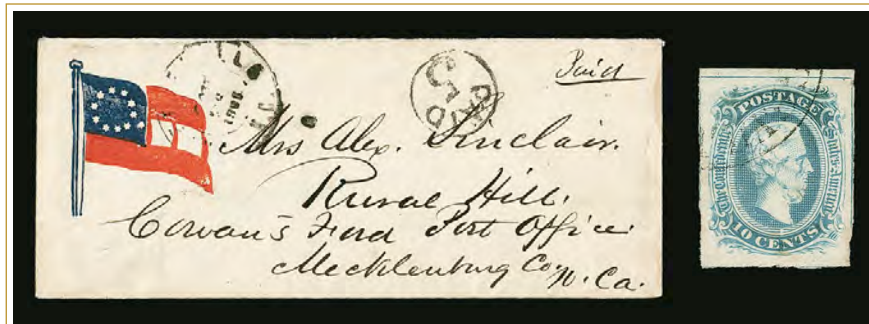 Paid
PAID
5
Mrs Alex. Sinclair.
Rural Hill.
Cowan's Ford Post Office
Mecklenburg Co.
N. Ca.
POSTAGE
The Confederate States of America
10 CENTS